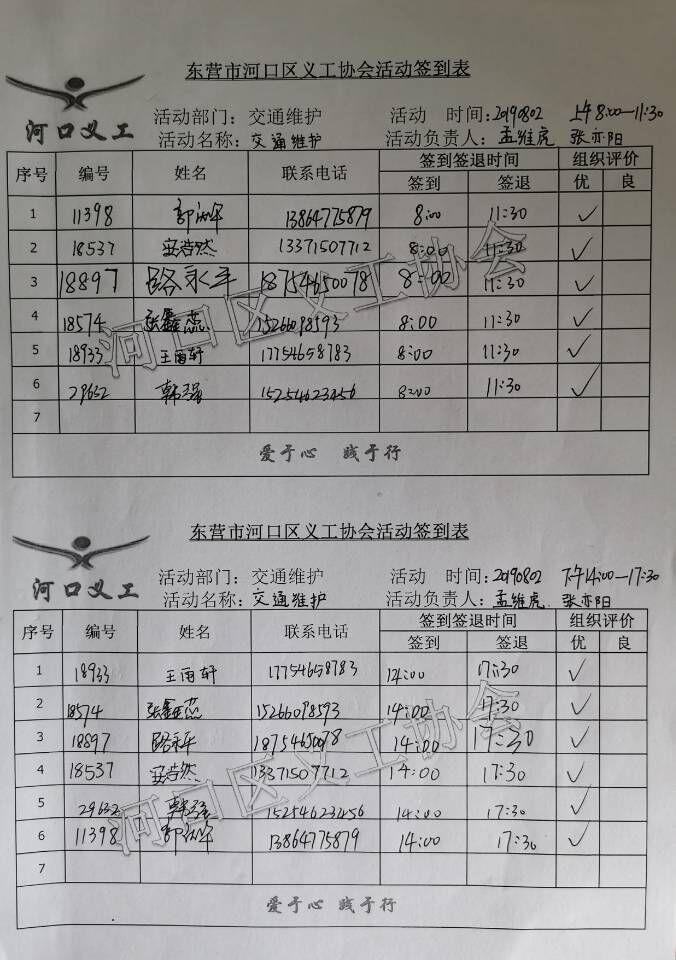 东营市河口区义工协会活动签到表
河口义工
活动部门：交通维护 活动 时间：20190802 上午8:00—11:30
活动名称：交通维护 活动负责人：孟维虎 张亦阳
序号 编号 姓名 联系电话 签到签退时间 组织评价
签到 签退 优 良
1 11398 13864775879 8:00 11:30 ✓
2 18537 安浩然 13371507712 8:00 11:30 ✓
3 18897 路永平 18754650078 8:00 11:30 ✓
4 18574 张鑫蕊 15266098593 8:00 11:30 ✓
5 18933 王雨轩 17754658783 8:00 11:30 ✓
6 29632 韩强 15254623456 8:00 11:30 ✓
7
爱于心 践于行
河口区义工协会
东营市河口区义工协会活动签到表
河口义工
活动部门：交通维护 活动 时间：20190802 下午14:00—17:30
活动名称：交通维护 活动负责人：孟维虎 张亦阳
序号 编号 姓名 联系电话 签到签退时间 组织评价
签到 签退 优 良
1 18933 王雨轩 17754658783 14:00 17:30 ✓
2 18574 张鑫蕊 15266098593 14:00 17:30 ✓
3 18897 路永平 18754650078 14:00 17:30 ✓
4 18537 安浩然 13371507712 14:00 17:30 ✓
5 29632 韩强 15254623456 14:00 17:30 ✓
6 11398 13864775879 14:00 17:30 ✓
7
爱于心 践于行
河口区义工协会